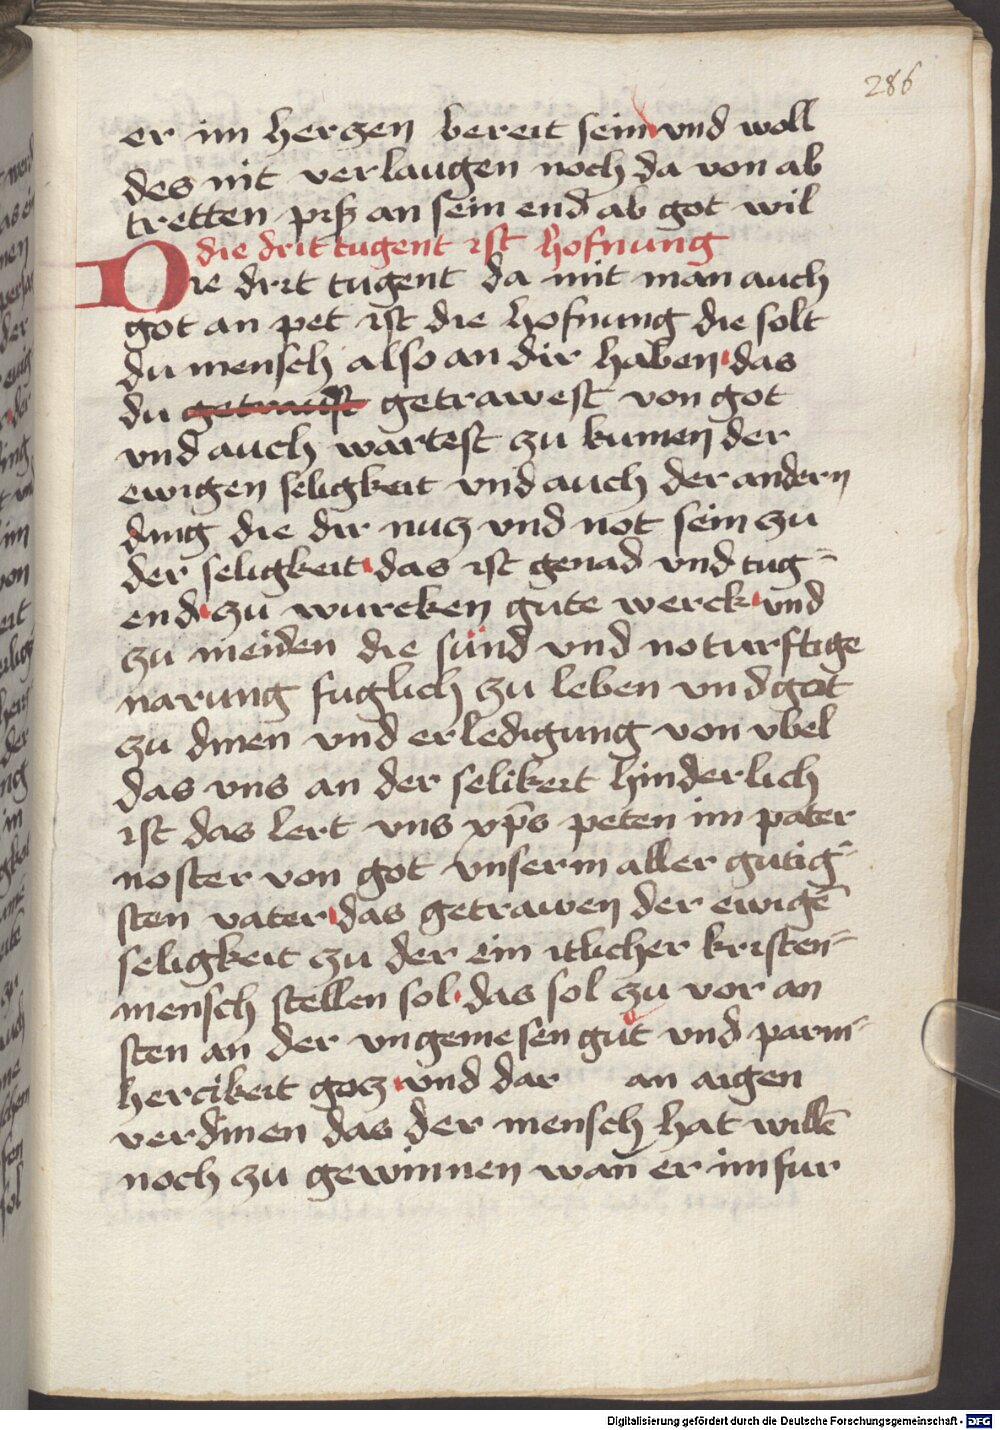 286
er im herczen bereit sein vnd woll
des nit verlaugen noch da von ab
tretten piß an sein end ab got wil
die drit tugent ist hofnung
Die drit tugent da mit man auch
got an pet ist die hofnung die solt
du mensch also an dir haben das
du getraust getrawest von got
vnd auch wartest zu kumen der
ewigen seligkeit vnd auch der andern
ding die dir nucz vnd not sein zu
der seligkeit das ist genad vnd tug-
end zu wurcken gute werck vnd
zu meiden die sünd vnd noturftige
narung fuglich zu leben vnd got
zu dinen vnd erledigung von vbel
das vns an der selikeit hinderlich
ist das lert vns xp̄s peten im pater
noster von got vnserm aller gutig-
sten vater das getrawen der ewigē
seligkeit zu der ein itlicher kristen-
mensch stellen sol das sol zu vor an
sten an der vngemesen gut vnd parm-
herczikeit gocz vnd dar an aigen
verdinen das der mensch hat willē
noch zu gewinnen wan er im fur
Digitalisierung gefördert durch die Deutsche Forschungsgemeinschaft - DFG